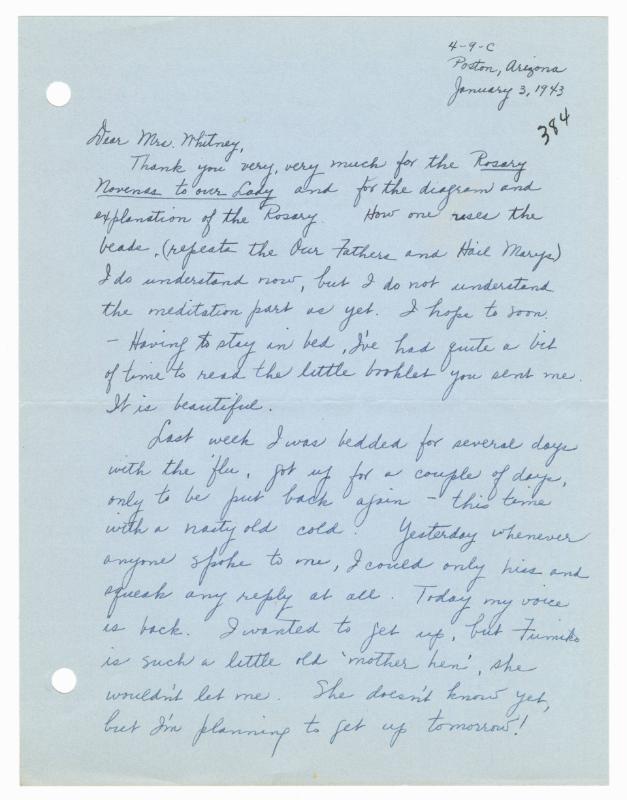 4-9-C
Poston, Arizona
January 3, 1943
384
Dear Mrs. Whitney,
Thank you very, very much for the Rosary
Novenas to our Lady and for the diagram and
explanation of the Rosary. How one uses the
beads, (repeats the Our Fathers and Hail Marys)
I do understand now, but I do not understand
the meditation part as yet. I hope to soon.
- Having to stay in bed, I've had quite a bit
of time to read the little booklet you sent me.
It is beautiful.
Last week I was bedded for several days
with the 'flu, got up for a couple of days,
only to be put back again - this time
with a nasty old cold. Yesterday whenever
anyone spoke to me, I could only hiss and
squeak any reply at all. Today my voice
is back. I wanted to get up, but Fumiko
is such a little old 'mother hen', she
wouldn't let me. She doesn't know yet,
but I'm planning to get up tomorrow!